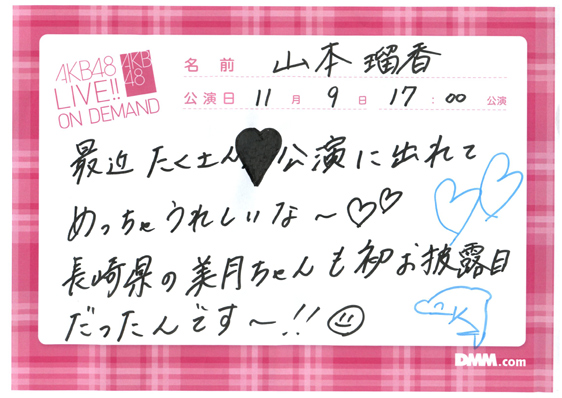 AKB48
LIVE!!
ON DEMAND
AKB
48
名前 山本 瑠香
公演日 11月9日 17:00 公演
最近たくさん公演に出れて
めっちゃうれしいな〜♡♡
長崎県の美月ちゃんも初お披露目
だったんです〜!!
DMM.com